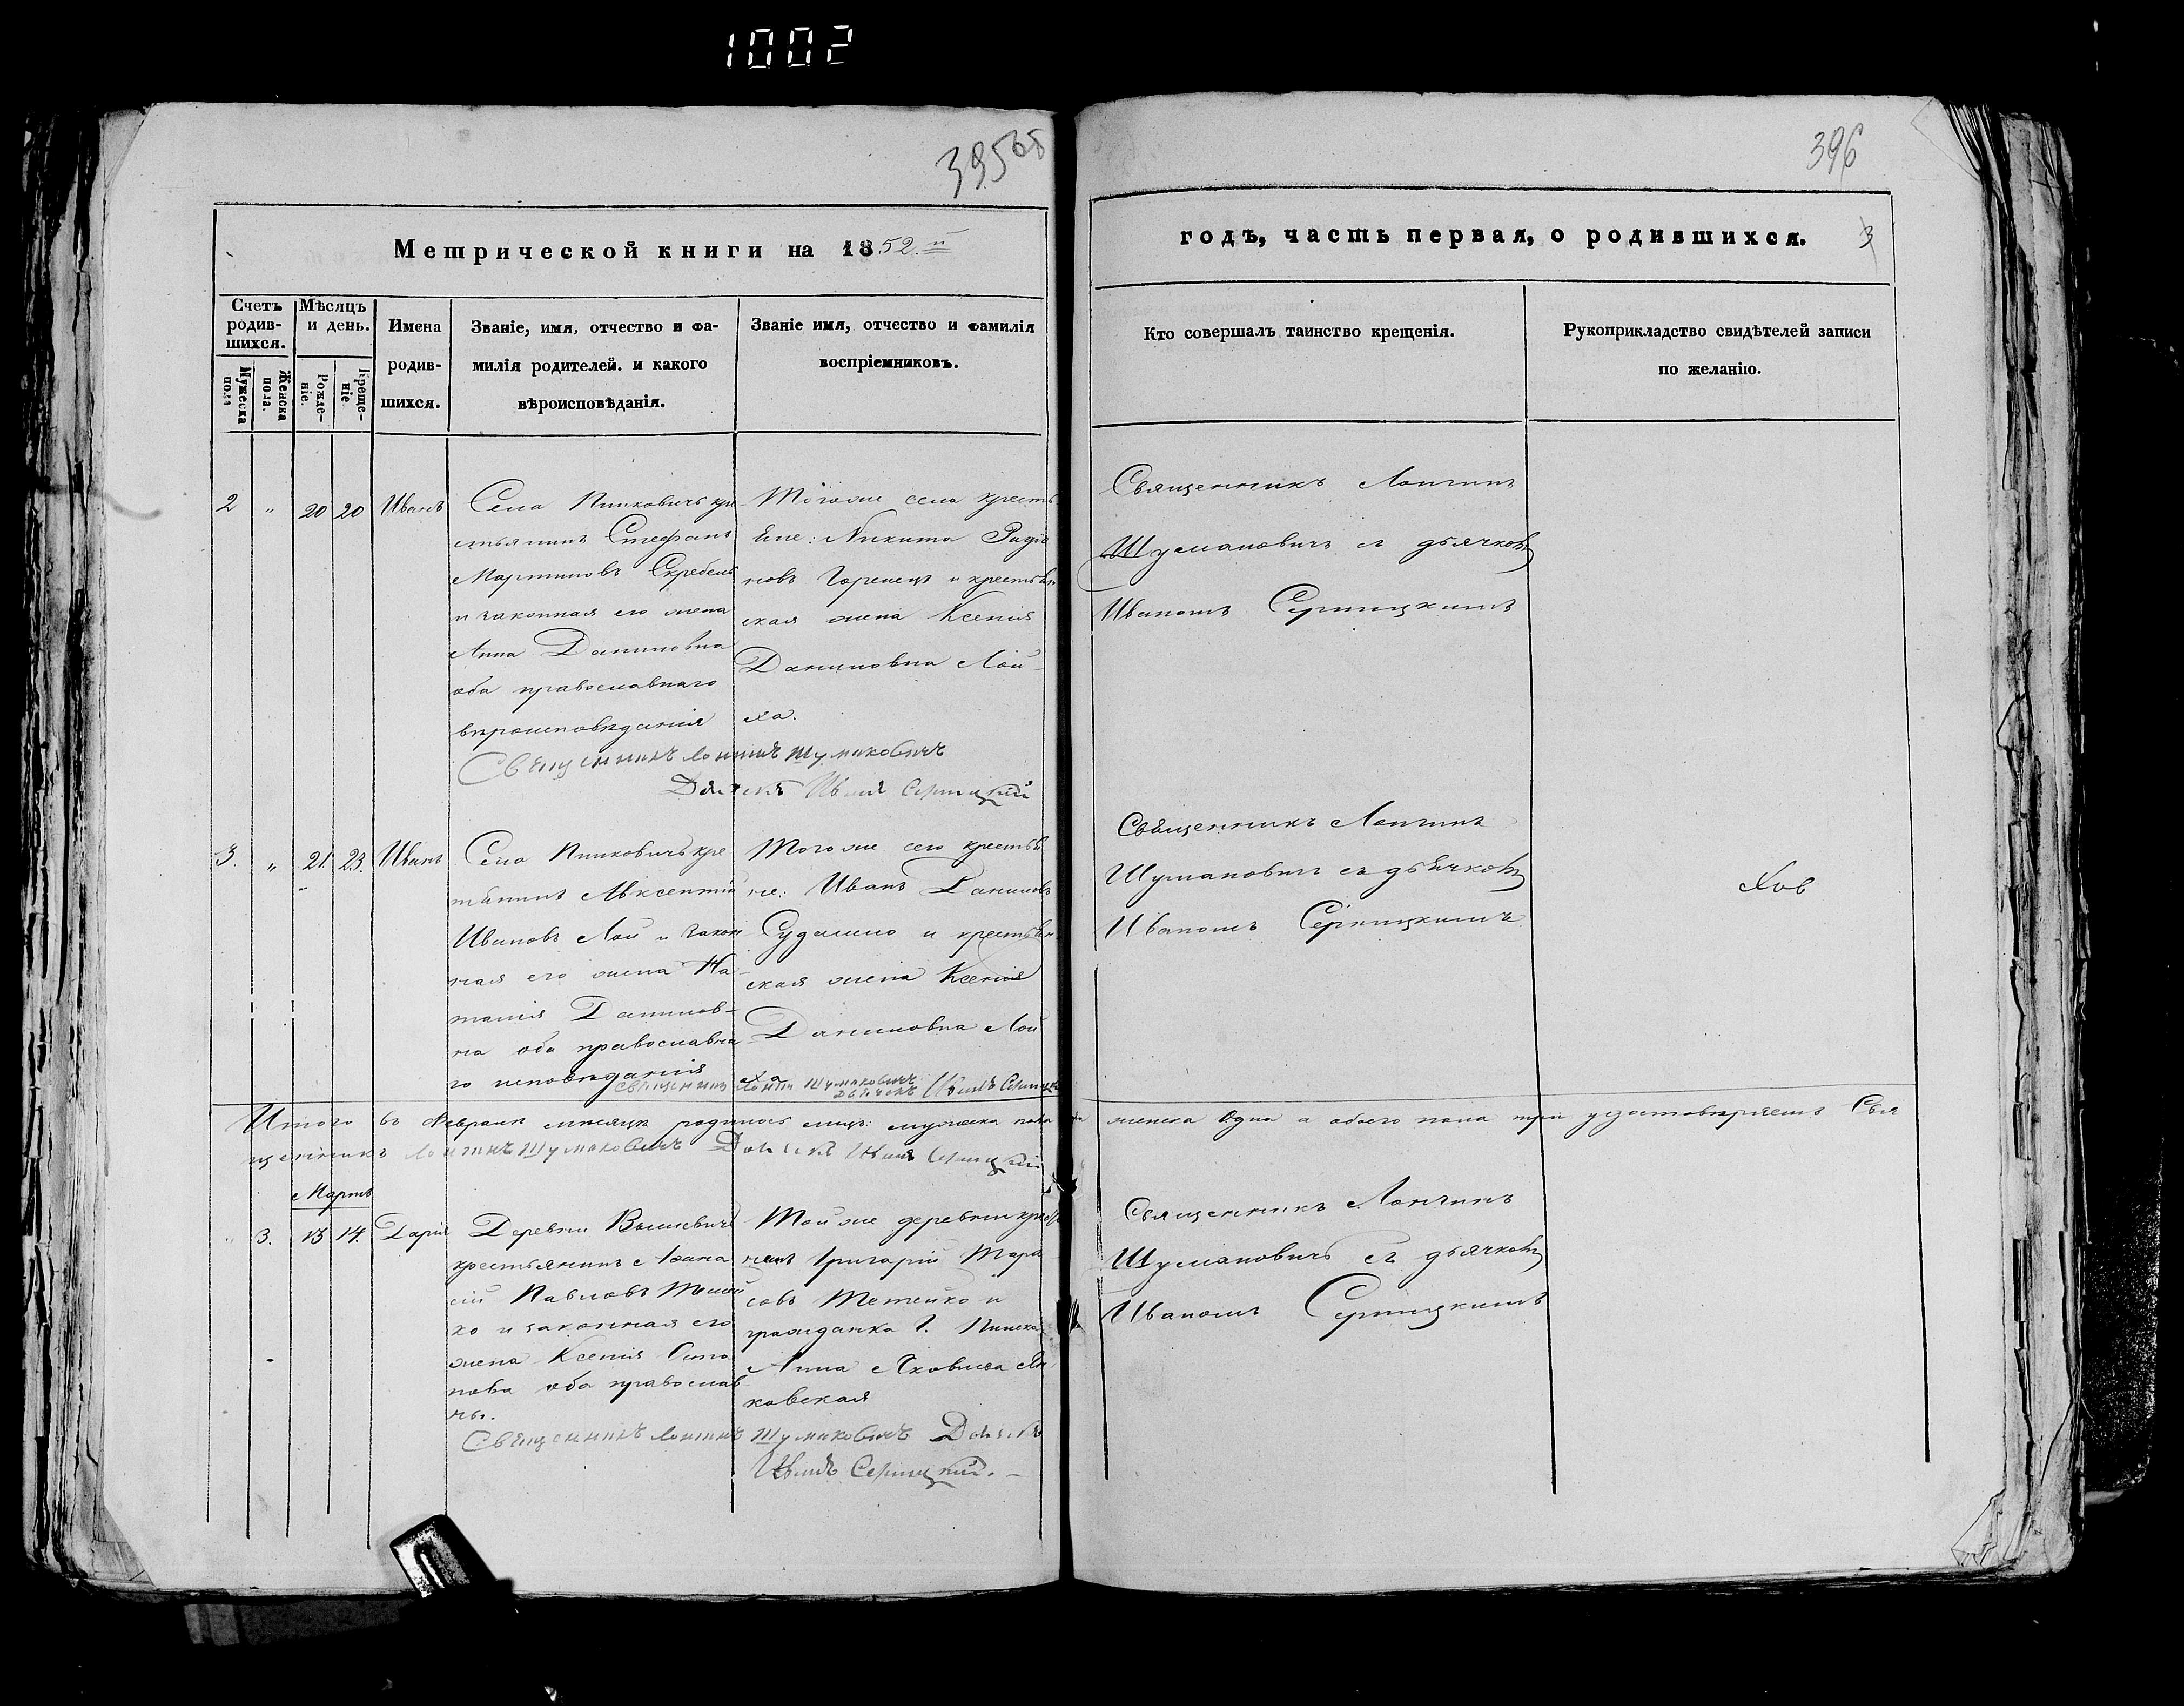 1002
395
396
Метрической книги на 1852й
годъ, часть первая, о родившихся.
3
Счетъ родив-шихся.
Мужеска пола
Женска пола.
Мѣсяцъ и день.
Рожде-ніе.
Креще-ніе
Имена
родив-
шихся.
Званіе, имя, отчество и фа-
милія родителей. и какого
вѣроисповѣданія.
Званіе имя, отчество и фамилія
воспріемниковъ.
Кто совершалъ таинство крещенія.
Рукоприкладство свидѣтелей записи
по желанію.
2 " 20 20 Иванъ
Села Пинковичъ кре
стьянинъ Стефанъ
Мартиновъ Скребецъ
и законная его жена
Анна Даниловна
оба православнаго
вѣроисповѣданія
Тогоже села крестья
не: Никита Радіо
новъ Горегляд и крестьян
ская жена Ксенія
Даниловна Лой
ха.
Священникъ Лонгинъ
Шумановичъ съ дьячкомъ
Иваномъ Серницкимъ
Священникъ Лонгинъ Шумановичъ
Дьячекъ Иванъ Серницкій
3. " 21. 23. Иванъ
Села Пинковичъ кре
стьянинъ Авксентій
Ивановъ Лой и закон
ная его жена На-
талія Данилов-
на оба православна
го исповѣданія
Тогоже села крестья
не: Иванъ Даниловъ
и крестьян
ская жена Ксенія
Даниловна Лой
ха
Священникъ Лонгинъ
Шумановичъ съ дьячкомъ
Иваномъ Серницкимъ
Священникъ Лонгинъ Шумановичъ
Дьячекъ Иванъ Серницкій
Итого въ Февралѣ мѣсяцѣ родилось лицъ: мужеска пола два женска одна а обоего пола три удостовѣряетъ Свя
щенникъ Лонгинъ Шумановичъ Дьячекъ Иванъ Серницкій
Мартъ
" 3. 13 14. Дарія
Деревни Вышевичъ
крестьянинъ Афана
сій Павловъ
ко и законная его
жена Ксенія
пова оба православ
ны.
Той же деревни крестья
нинъ Григорій Тара
совъ Тетейко и
гражданка Г. Пинска
Анна Яковлева Ян
ковская
Священникъ Лонгинъ
Шумановичъ съ дьячкомъ
Иваномъ Серницкимъ
Священникъ Лонгинъ Шумановичъ Дьячекъ
Иванъ Серницкій.